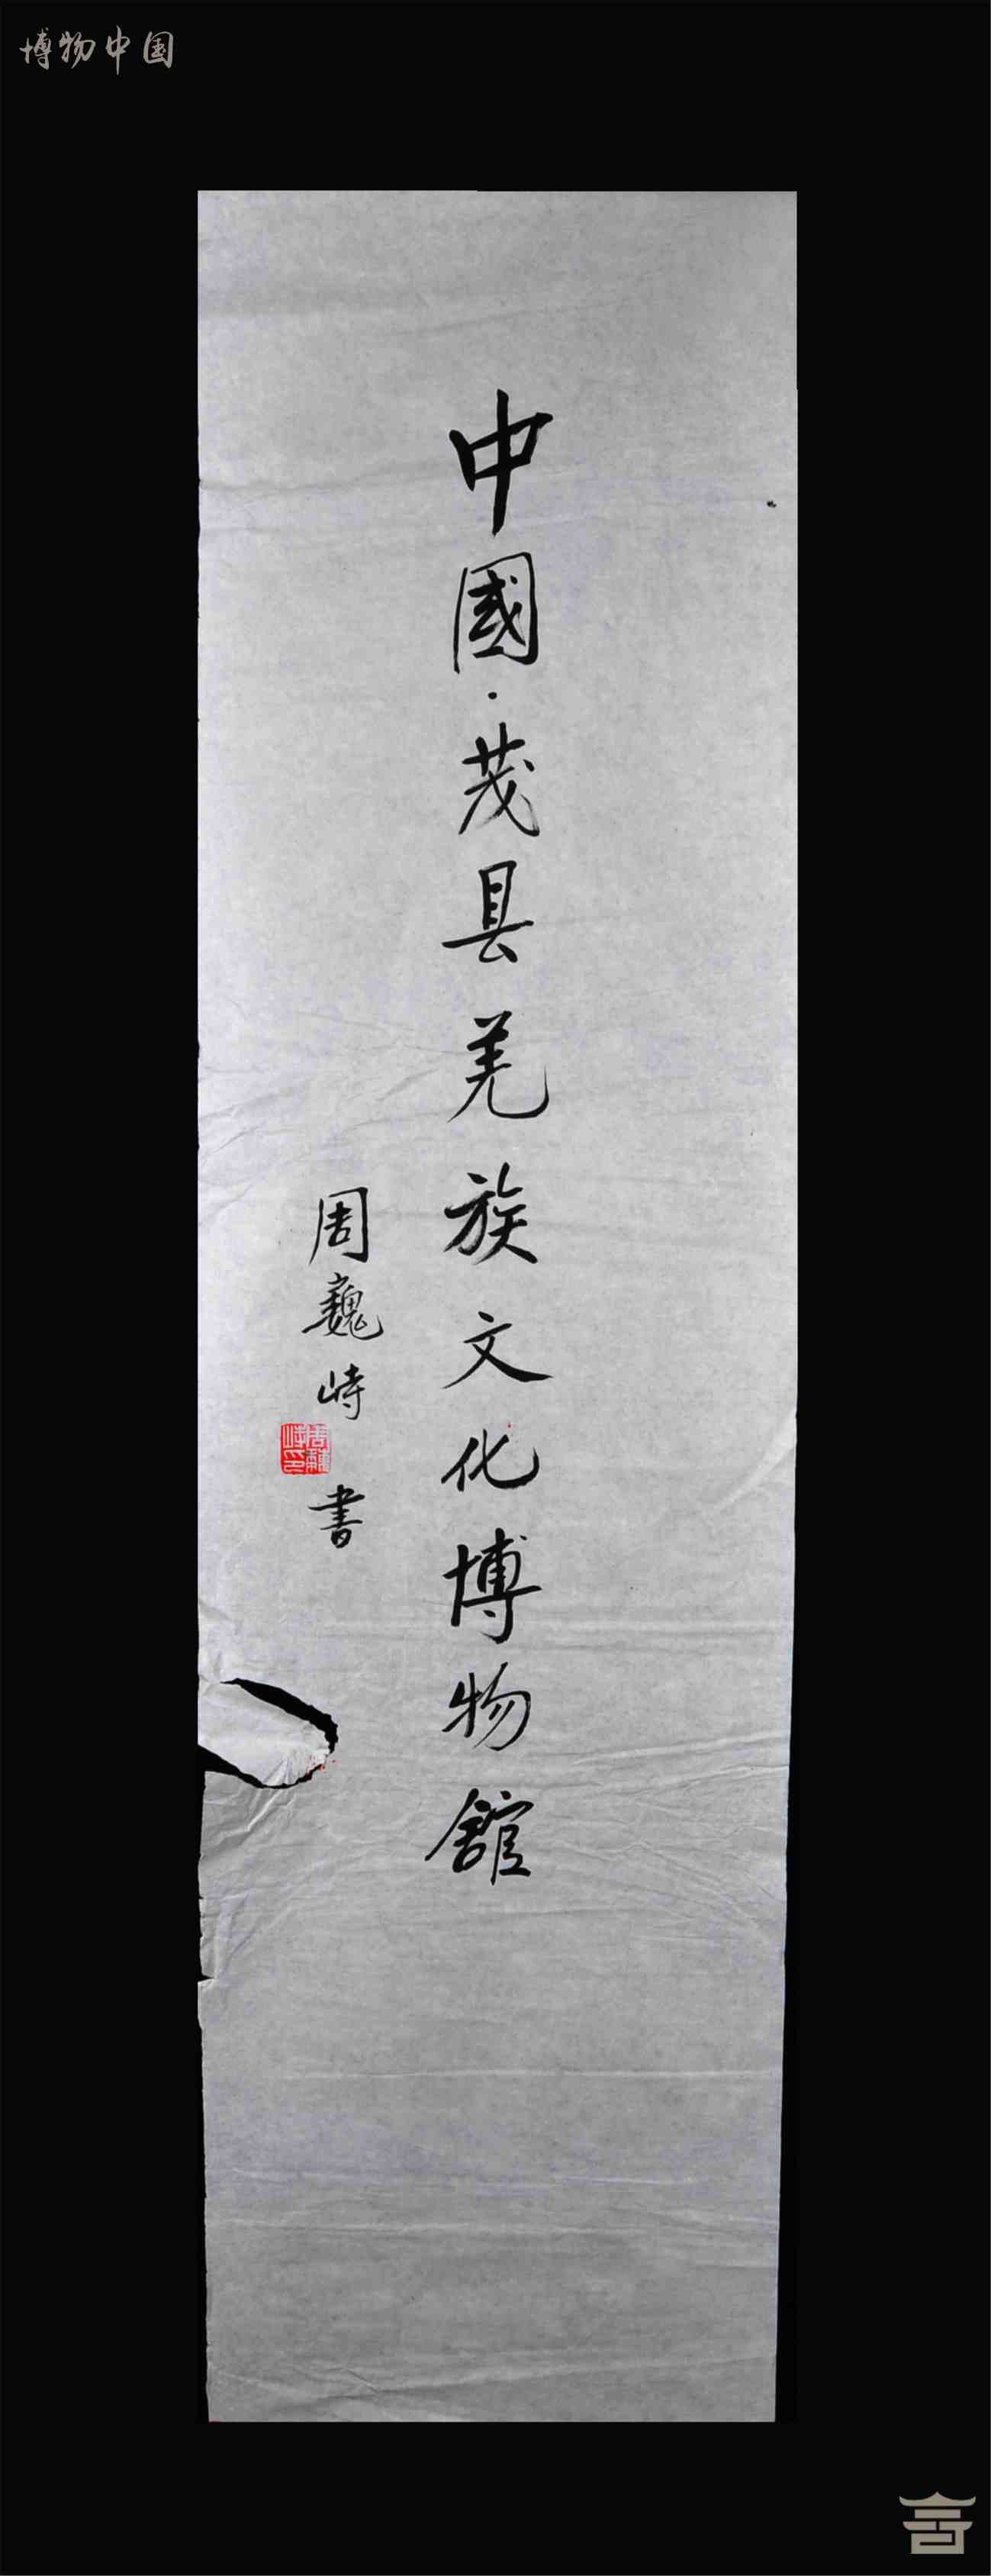 博物中国
中國·茂县羌族文化博物館
周巍峙
书
周巍峙印